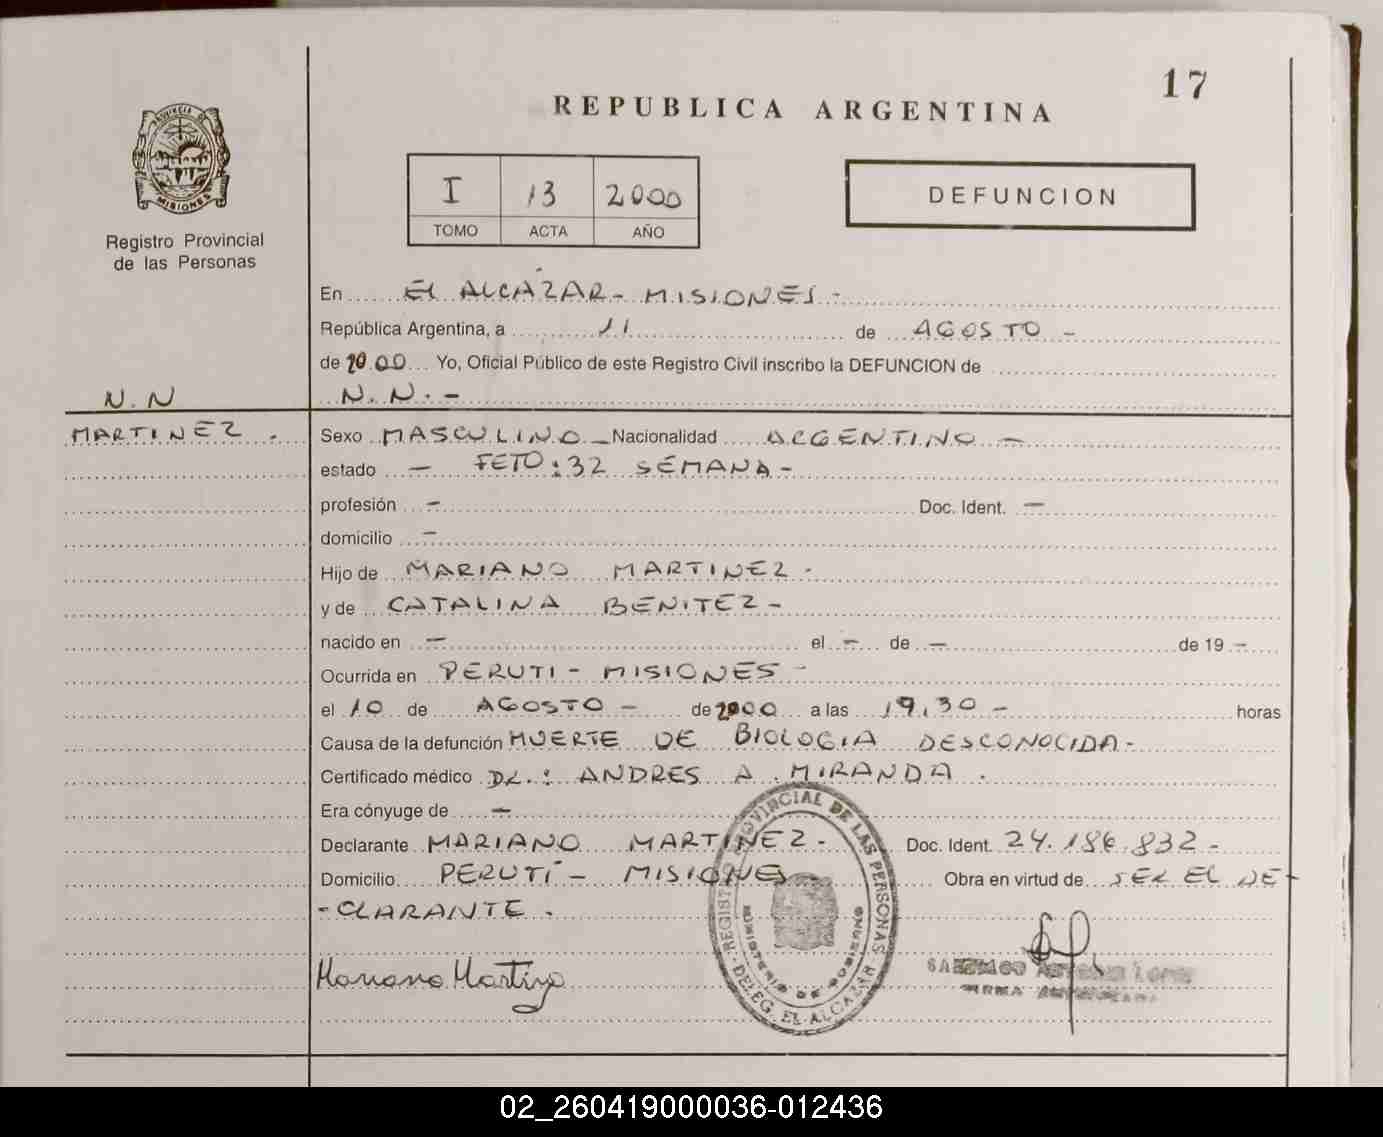 17
REPUBLICA ARGENTINA
PROVINCIA DE
MISIONES
Registro Provincial
de las Personas
I 13 2000
TOMO ACTA AÑO
DEFUNCION
En EL ALCAZAR - MISIONES -
República Argentina, a 11 de AGOSTO -
de 2000 Yo, Oficial Público de este Registro Civil inscribo la DEFUNCION de
N.N N.N. -
MARTINEZ. Sexo MASCULINO - Nacionalidad ARGENTINO -
estado - FETO: 32 SEMANA -
profesión - Doc. Ident. -
domicilio -
Hijo de MARIANO MARTINEZ -
y de CATALINA BENITEZ -
nacido en - el - de - de 19 -
Ocurrida en PERUTI - MISIONES -
el 10 de AGOSTO - de 2000 a las 19,30 - horas
Causa de la defunción MUERTE DE BIOLOGIA DESCONOCIDA -
Certificado médico DR.: ANDRES A. MIRANDA.
Era cónyuge de -
Declarante MARIANO MARTINEZ - Doc. Ident. 24.186.832 -
Domicilio PERUTÍ - MISIONES Obra en virtud de SER EL DE-
- CLARANTE.
REGISTRO PROVINCIAL DE LAS PERSONAS
MINISTERIO DE GOBIERNO
DELEG. EL ALCAZAR
Mariano Martinez
02_260419000036-012436